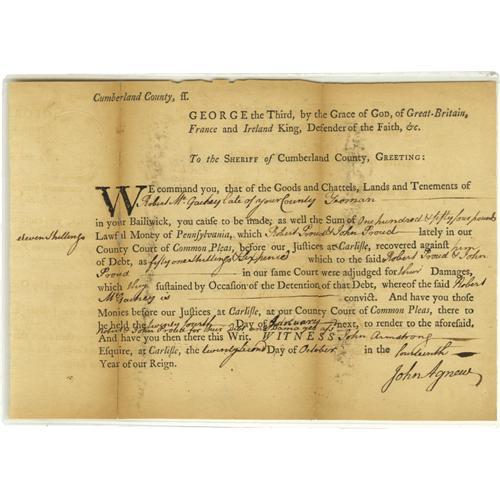 Cumberland County, ss.
GEORGE the Third, by the Grace of GOD, of Great-Britain,
France and Ireland King, Defender of the Faith, &c.
To the SHERIFF of Cumberland County, GREETING:
WE command you, that of the Goods and Chattels, Lands and Tenements of
Robert late of your County Yeoman
in your Bailiwick, you cause to be made; as well the Sum of One hundred & fifty four pounds
eleven Shillings Lawful Money of Pennsylvania, which Robert Proud & John Proud lately in our
County Court of Common Pleas, before our Justices at Carlisle, recovered against him
of Debt, as fifty one Shillings & Six pence which to the said Robert Proud & John
Proud in our same Court were adjudged for their Damages,
which they sustained by Occasion of the Detention of that Debt, whereof the said Robert
is convict. And have you those
Monies before our Justices at Carlisle, at our County Court of Common Pleas, there to
be held the Day of next, to render to the aforesaid,
Robert & John Proud for their Debt & Damages afs.
And have you then there this Writ. WITNESS John Armstrong
Esquire, at Carlisle, the twenty second Day of October in the fourteenth
Year of our Reign.
John Agnew